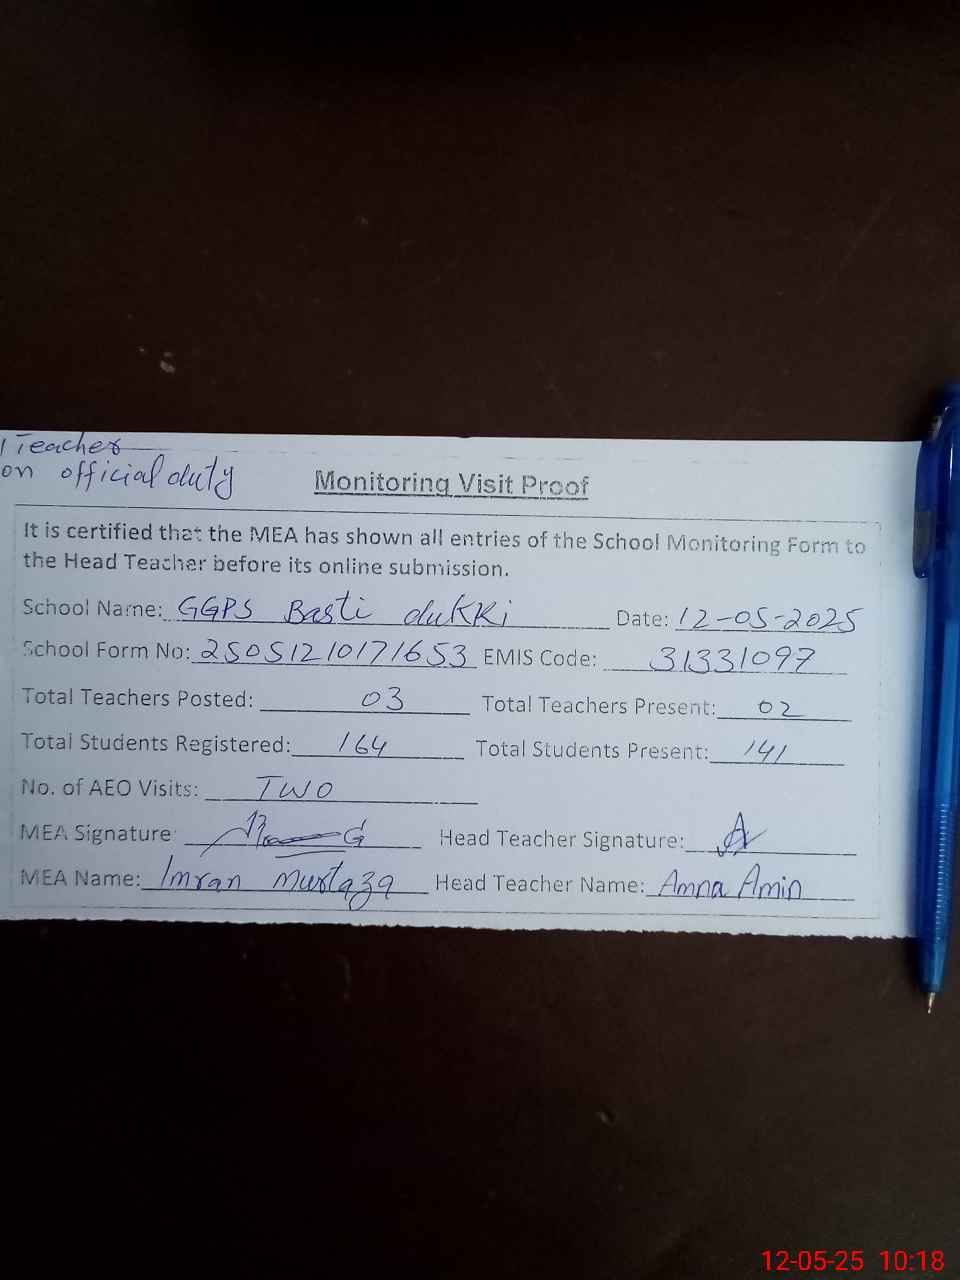 1 Teacher
on official duty
Monitoring Visit Proof
It is certified that the MEA has shown all entries of the School Monitoring Form to
the Head Teacher before its online submission.
School Name: GGPS Basti dukki Date: 12-05-2025
School Form No: 25051210171653 EMIS Code: 31331097
Total Teachers Posted: 03 Total Teachers Present: 02
Total Students Registered: 164 Total Students Present: 141
No. of AEO Visits: TWO
MEA Signature: Head Teacher Signature:
MEA Name: Imran Murtaza Head Teacher Name: Amna Amin
12-05-25 10:18